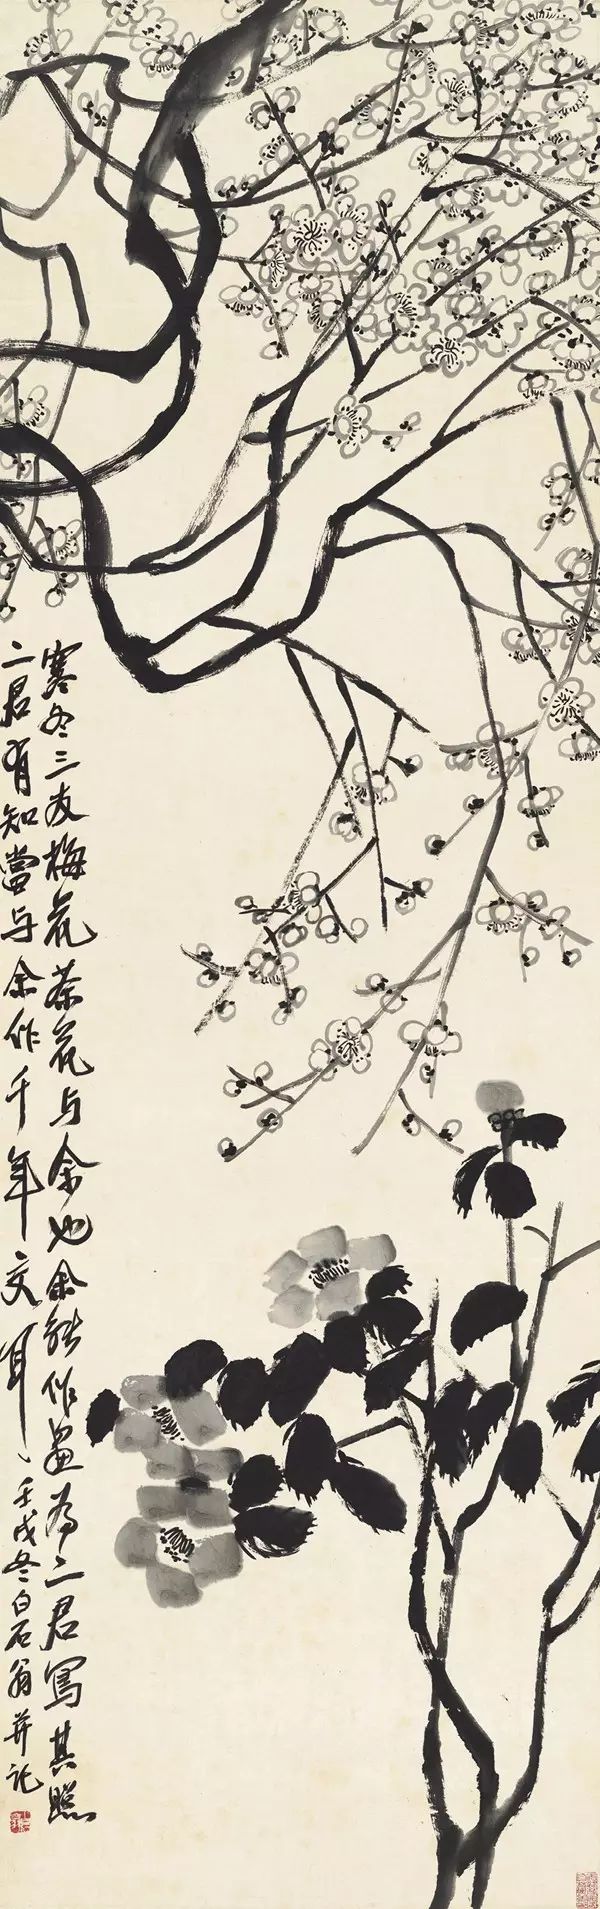 寒冬三友梅花茶花与余也余能作畫為二君寫其照
二君有知當与余作千年交耳壬戌冬白石翁并記